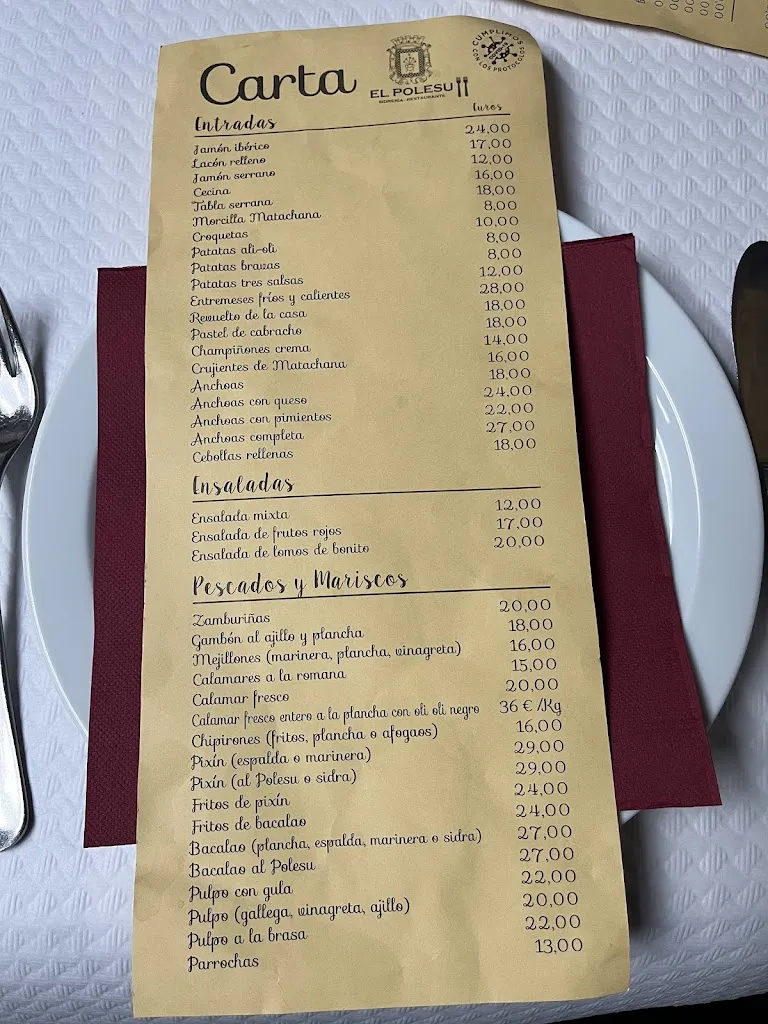 Carta
EL POLESU
SIDRERÍA - RESTAURANTE
CUMPLIMOS CON LOS PROTOCOLOS
Euros
Entradas
Jamón ibérico 24,00
Lacón relleno 17,00
Jamón serrano 12,00
Cecina 16,00
Tabla serrana 18,00
Morcilla Matachana 8,00
Croquetas 10,00
Patatas ali-oli 8,00
Patatas bravas 8,00
Patatas tres salsas 12,00
Entremeses fríos y calientes 28,00
Revuelto de la casa 18,00
Pastel de cabracho 18,00
Champiñones crema 14,00
Crujientes de Matachana 16,00
Anchoas 18,00
Anchoas con queso 24,00
Anchoas con pimientos 22,00
Anchoas completa 27,00
Cebollas rellenas 18,00
Ensaladas
Ensalada mixta 12,00
Ensalada de frutos rojos 17,00
Ensalada de lomos de bonito 20,00
Pescados y Mariscos
Zamburiñas 20,00
Gambón al ajillo y plancha 18,00
Mejillones (marinera, plancha, vinagreta) 16,00
Calamares a la romana 15,00
Calamar fresco 20,00
Calamar fresco entero a la plancha con oli oli negro 36 € /Kg
Chipirones (fritos, plancha o afogaos) 16,00
Pixín (espalda o marinera) 29,00
Pixín (al Polesu o sidra) 29,00
Fritos de pixín 24,00
Fritos de bacalao 24,00
Bacalao (plancha, espalda, marinera o sidra) 27,00
Bacalao al Polesu 27,00
Pulpo con gula 22,00
Pulpo (gallega, vinagreta, ajillo) 20,00
Pulpo a la brasa 22,00
Parrochas 13,00